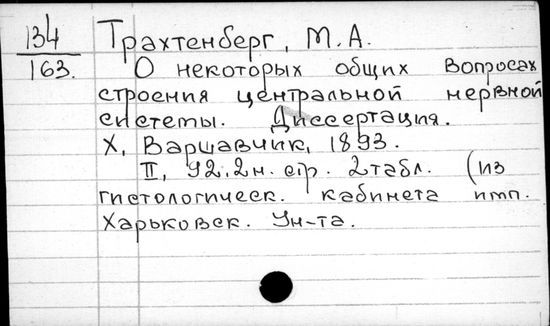 134 Трахтенберг, М.А.
163. О некоторых общих вопросах
строения центральной нервной
системы. Диссертация.
Х, Варшавчик, 1893.
II, 92, 2 н. стр. 2 табл. (из
гистологическ. кабинета имп.
Харьковск. Ун-та.